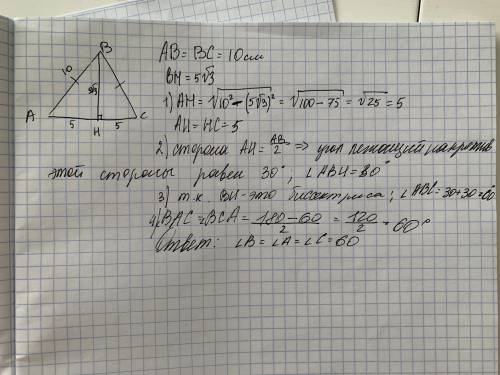 B
10
5√3
A
5
H
5
C
AB = BC = 10 см
BH = 5√3
1) AH = √10² - (5√3)² = √100 - 75 = √25 = 5
AH = HC = 5
2) сторона AH = AB/2 => угол лежащий напротив
этой стороны равен 30°, ∠ABH = 30°
3) т.к. BH - это биссектриса; ∠ABC = 30+30=60°
4) ∠BAC = ∠BCA = 180-60/2 = 120/2 = 60°
Ответ: ∠B = ∠A = ∠C = 60